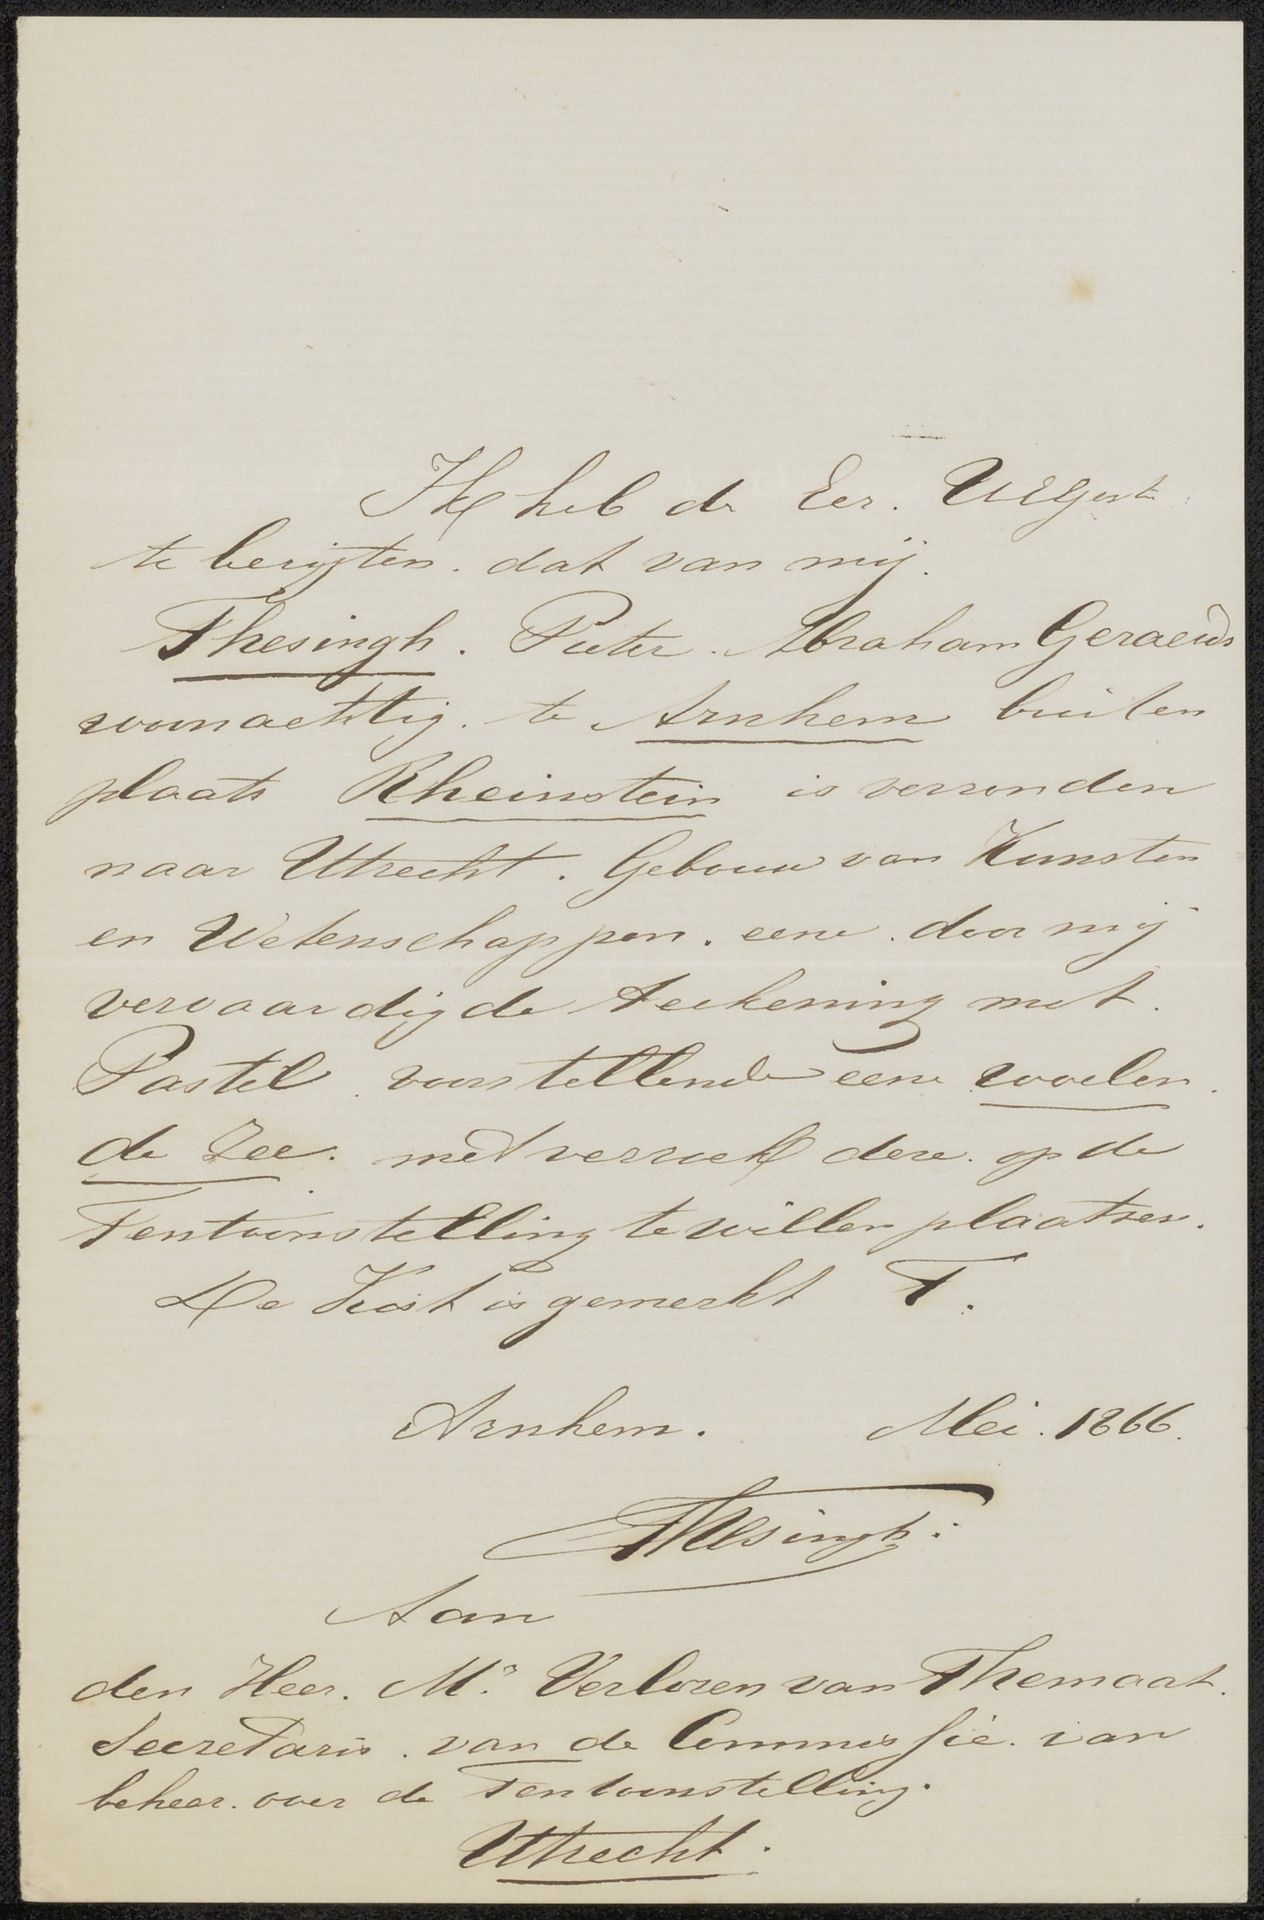 Ik heb de Eer. UEGest
te berigten. dat van mij.
Thesingh. Pieter. Abraham Geraerds
woonachtig. te Arnhem buiten
plaats Rheinstein is verzonden
naar Utrecht. Gebouw van Kunsten
en Wetenschappen. eene. door mij
vervaardigde teekening met.
Pastel. voorstellende eene woelen
de Zee. met verzoek deze. op de
Tentoonstelling te willen plaatsen.
De Kist is gemerkt T.
Arnhem. Mei. 1866.
Thesingh.
Aan
den Heer. Mr. Verloren van Themaat.
Secretaris. van de Commissie. van
beheer. over de Tentoonstelling.
Utrecht.